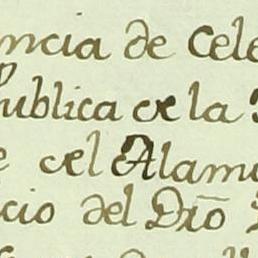 ncia de Cele
publica de la
de el Alam
cio del Dro